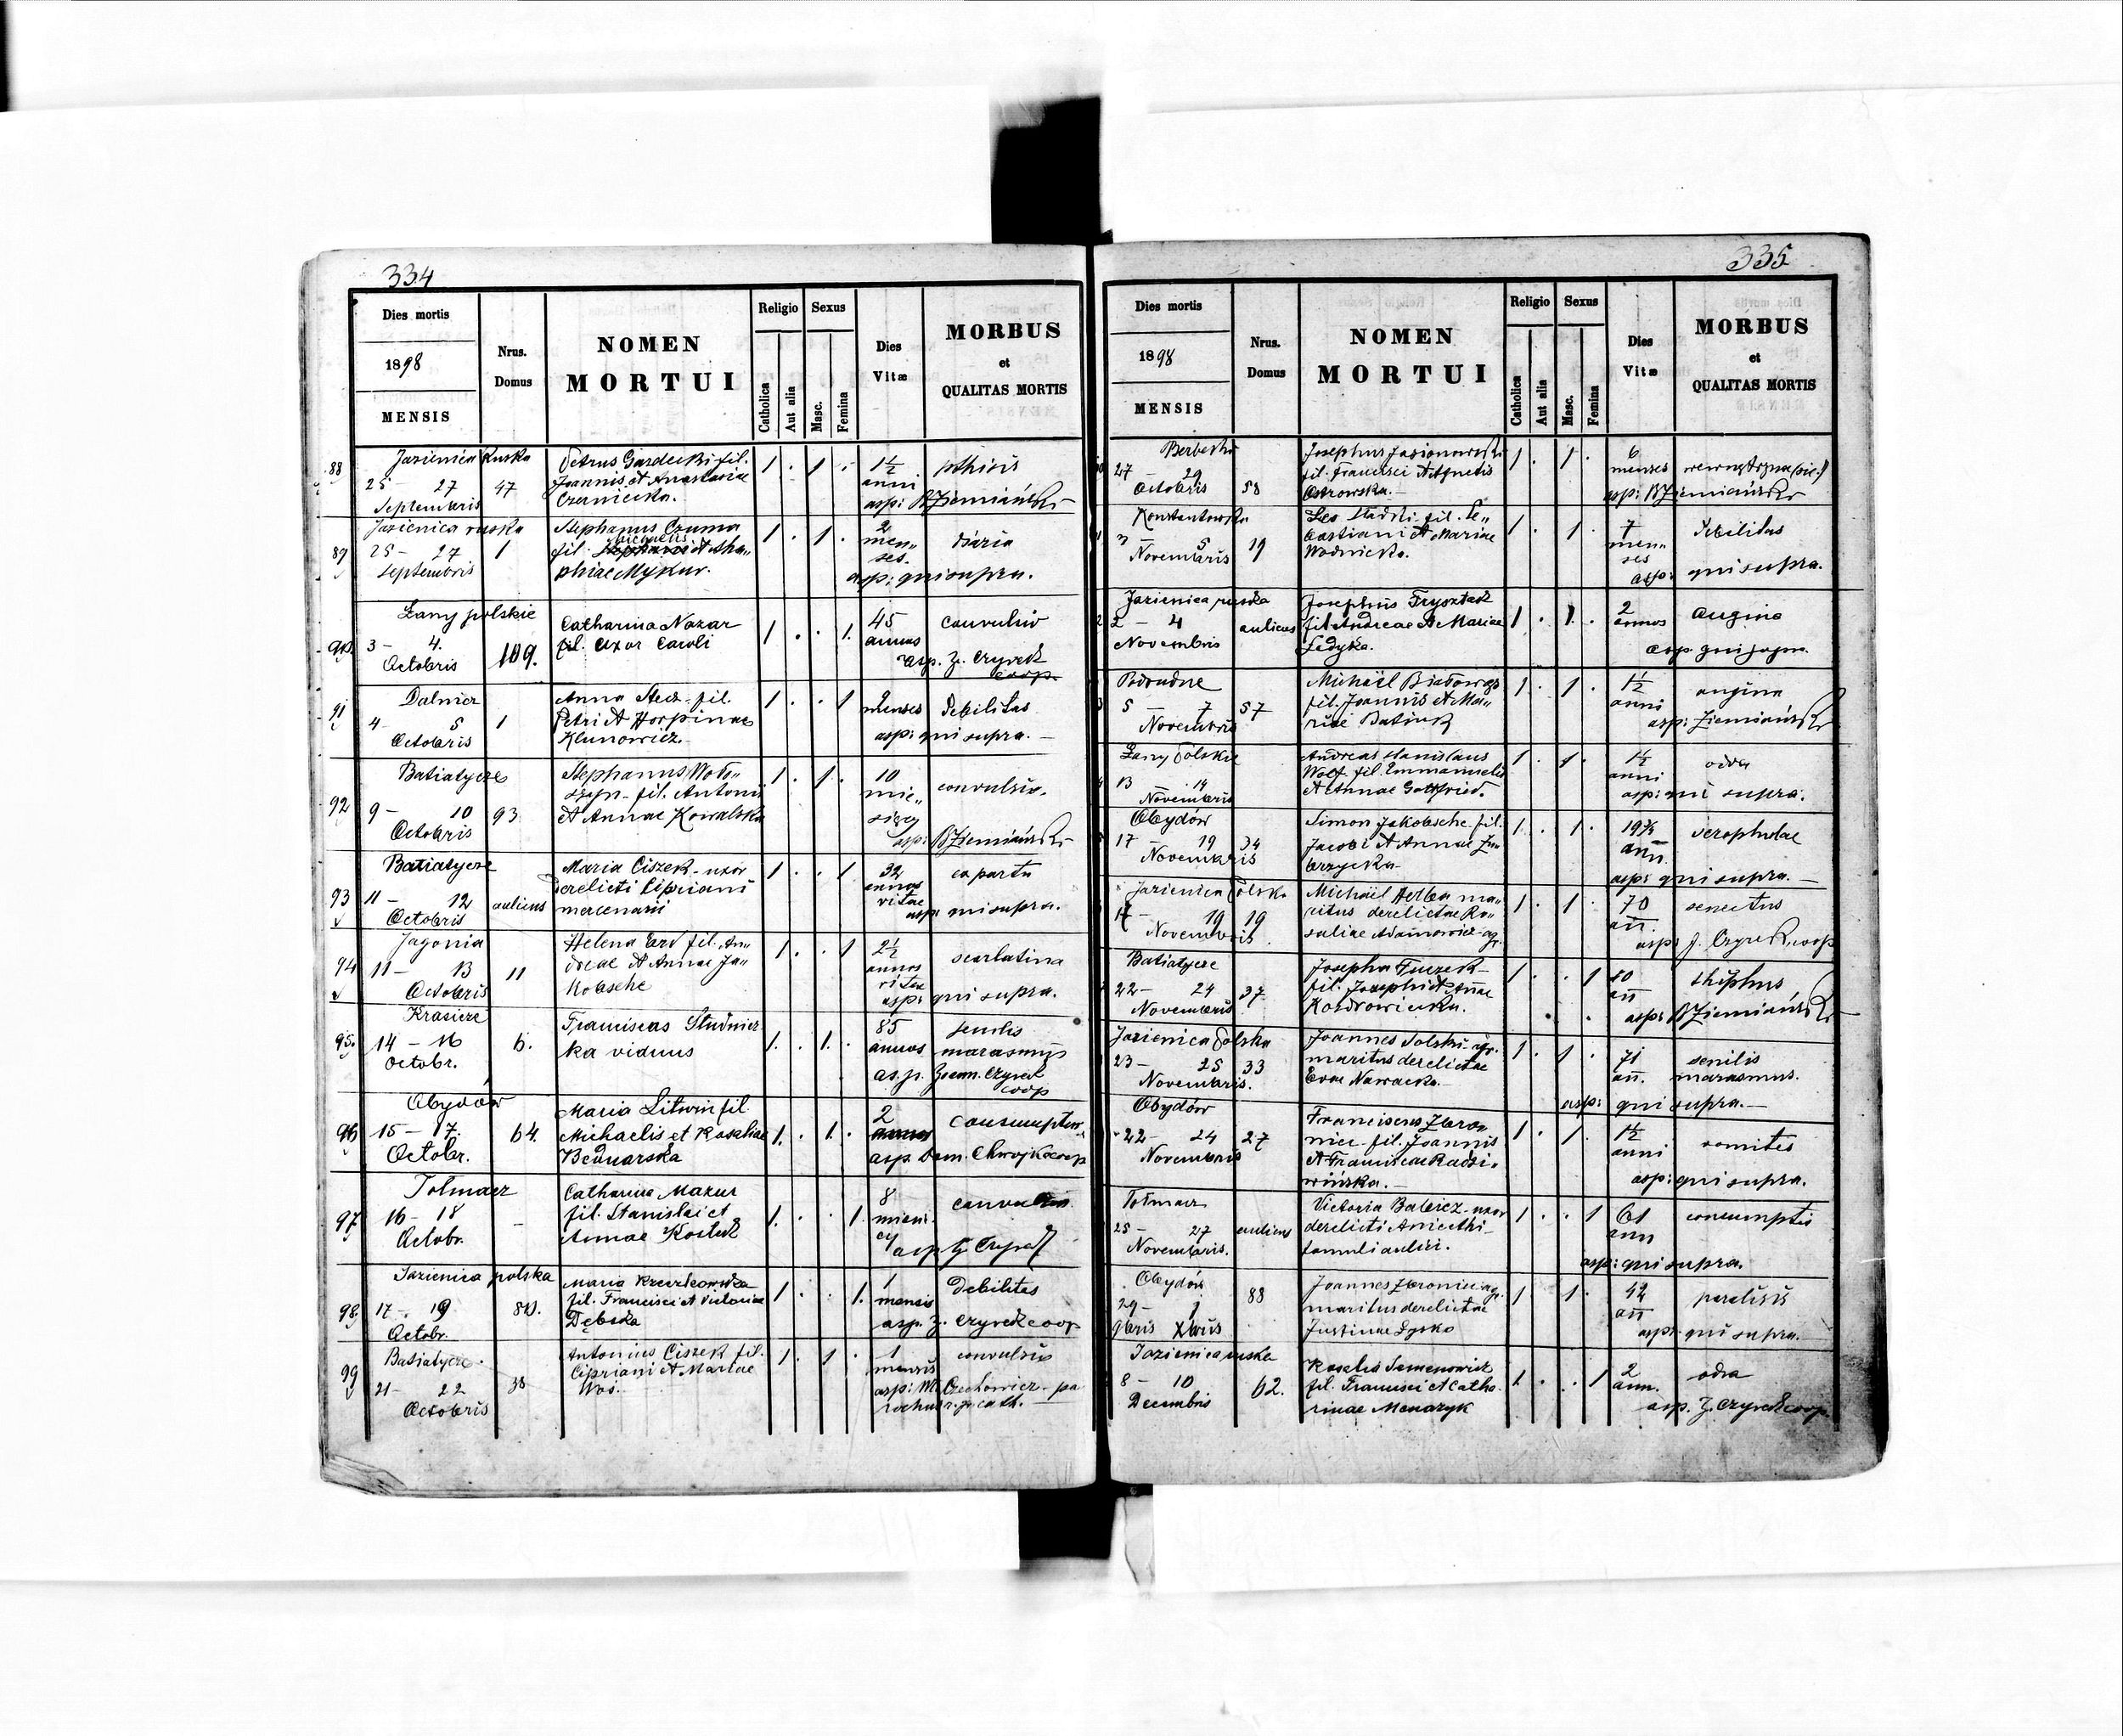 334
Dies mortis
1898
MENSIS
Nrus.
Domus
NOMEN
MORTUI
Religio
Catholica
Aut alia
Sexus
Masc.
Femina
Dies
Vitæ
MORBUS
et
QUALITAS MORTIS
88
Jazienica Ruska
25 - 27
Septembris
47
Petrus Gardecki fil.
Joannis et Anastasiae
Czernicka.
1 . 1 .
1½
anni
pthisis
asp: B Ziemiański
89
Jazienica ruska
25 - 27
Septembris
1
Stephanus Czuma
fil.
phiae Mykur.
1 . 1 .
2
men„
ses.
asp: qui supra.
90
Łany polskie
3 - 4.
Octobris
109.
Catharina Nazar
fil. uxor Caroli
1 . . 1.
45
annos
convulsio
asp. J. Czyrek
coop.
91
Dalnicz
4 - 5
Octobris
1
Anna Stec. fil.
Petri et Horpinae
Klimowicz.
1 . . 1
2
menses
debilitas
asp: qui supra.
92
Batiatycze
9 - 10
Octobris
93
Stephanus Woło„
szyn. fil. Antonii
et Annae Kowalska
1 . 1 .
10
mie„
sięcy
convulsio.
asp: B Ziemiański
93
Batiatycze
11 - 12
Octobris
aulicus
Maria Ciszek - uxor
derelicti Cipriani
mercenarii
1 . . 1
32
annos
vitae
ex partu
asp: qui supra.
94
Jagonia
11 - 13
Octobris
11
Helena Erd fil. An„
dreae et Annae Ja„
kobsche
1 . . 1
2½
annos
vitae
scarlatina
asp: qui supra.
95.
14 - 16
Octobr.
6.
Franciscus Studnicz
ka viduus
1. . 1. .
85
annos
senilis
marasmus
as.p. Joann. Czyrek
coop
96
Obydów
15 - 17.
Octobr.
64.
Maria Litwin fil.
Michaelis et Rosaliae
Bednarska
1. . 1. .
2
asp. Dom. coop
97
Tolmacz
16 - 18
Octobr.
-
Catharina Mazur
fil. Stanislai et
Annae
1. . . 1.
8
asp J. Czyrek
98
Jazienica polska
17 - 19
Octobr.
80.
Maria
fil. Francisci et Victoriae
Dębska
1. . . 1.
1
mensis
Debilitas
asp. J. Czyrek coop
99
Batiatycze.
21 - 22
Octobris
38
Antonius Ciszek fil.
Cipriani et Mariae
Woś.
1 . 1 .
1
mensis
convulsio
asp: M. Czechowicz - pa
rochus r. gr. cath.
335
Dies mortis
1898
MENSIS
Nrus.
Domus
NOMEN
MORTUI
Religio
Catholica
Aut alia
Sexus
Masc.
Femina
Dies
Vitæ
MORBUS
et
QUALITAS MORTIS
27 - 29
Octobris
58
Josephus Jasionowski
fil. Francisci et Agnetis
Ostrowska.
1 . 1 .
6
menses
asp: B Ziemiański
Konstantówka
3 - 5
Novembris
19
fil. Se„
bastiani et Mariae
Wodnicka.
1 . 1 .
7
men„
ses
debilitas
asp: qui supra.
Jazienica ruska
2 - 4
Novembris
aulicus
Josephus Frysztak
fil. Andreae et Mariae
Ledyka.
1 . 1 .
2
annos
angina
asp. qui supra.
5 - 7
Novembris
57
Michaël
fil. Joannis et Ma„
riae Batiuk
1 . 1 .
1½
anni
angina
asp: Ziemiański
Łany Polskie
13 - 14
Novembris
Andreas Stanislaus
Wolf. fil. Emmanuelis
et Annae Gottfried.
1 . 1 .
1½
anni
odra
asp: qui supra.
Obydów
17 - 19
Novembris
34
Simon Jakobsche fil.
Jacobi et Annae Za„
brzycka
1 . 1 .
ann.
scrophulae
asp: qui supra.
Jazienica Polska
17 - 19
Novembris
19
Michaël ma„
ritus derelictae Ro„
saliae Adamowicz agr.
1 . 1 .
70
an.
senectus
asp: J. Czyrek coop
Batiatycze
22 - 24
Novembris
37
Josepha
fil. Josephi et Annae
1 . . 1
50
an
thiphus
asp: B Ziemiański
Jazienica Polska
23 - 25
Novembris.
33
Joannes Solski agr.
maritus derelictae
Evae Nawacka.
1 . 1 .
71
an.
senilis
marasmus.
asp: qui supra.
Obydów
22 - 24
Novembris
27
Franciscus Zwro„
nicz fil. Joannis
et Franciscae Radzi„
wińska.
1 . 1 .
1½
anni
vomites
asp: qui supra.
Tołmacz
25 - 27
Novembris.
aulicus
Victoria Babicz - uxor
derelicti Anicethi
famuli aulici.
1 . . 1
61
ann
consumptio
asp: qui supra.
Obydów
29 - 1
9bris Xbris
88
Joannes agr.
maritus derelictae
Justinae Łysko
1 . 1 .
42
an
paralisis
asp: qui supra.
Jazienica ruska
8 - 10
Decembris
62.
Rosalia Semenowicz
fil. Francisci et Catha
rinae Monaryk
1. . . 1
2
ann.
odra
asp. J. Czyrek coop.